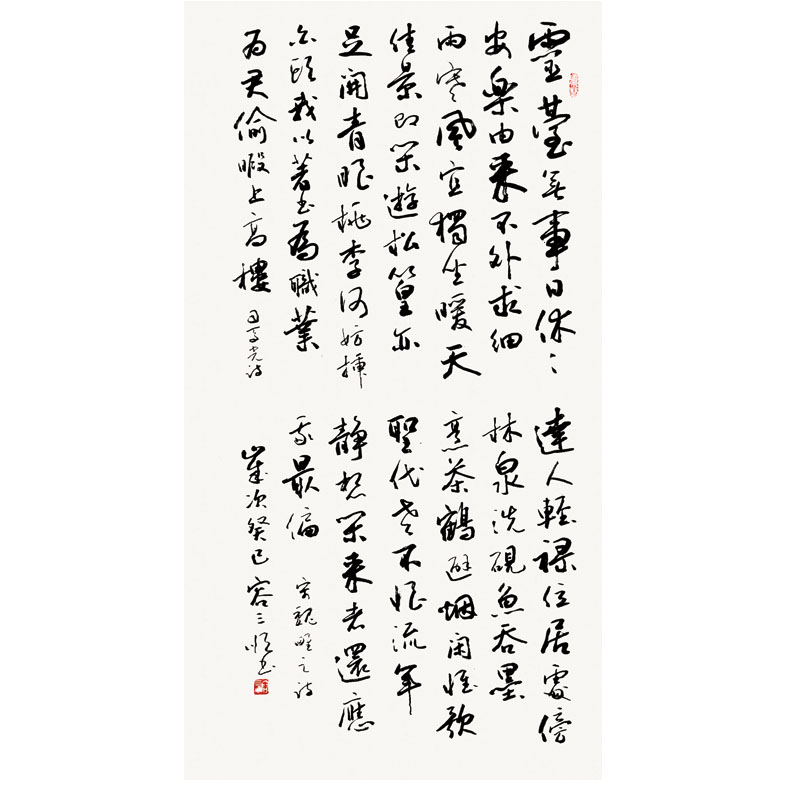 靈臺無事日休〻
安樂由来不外求細
雨寒風宜獨坐暖天
佳景即閑遊松篁亦
足開青眼桃李何妨插
白頭我以著書為職業
为君偷暇上高樓
司馬光詩
達人輕祿位居處傍
林泉洗硯魚吞墨
烹茶鶴避烟閑惟歌
聖代老不恨流年
静想閑来者還應
我最偏
宋魏野之詩
歲次癸巳容三